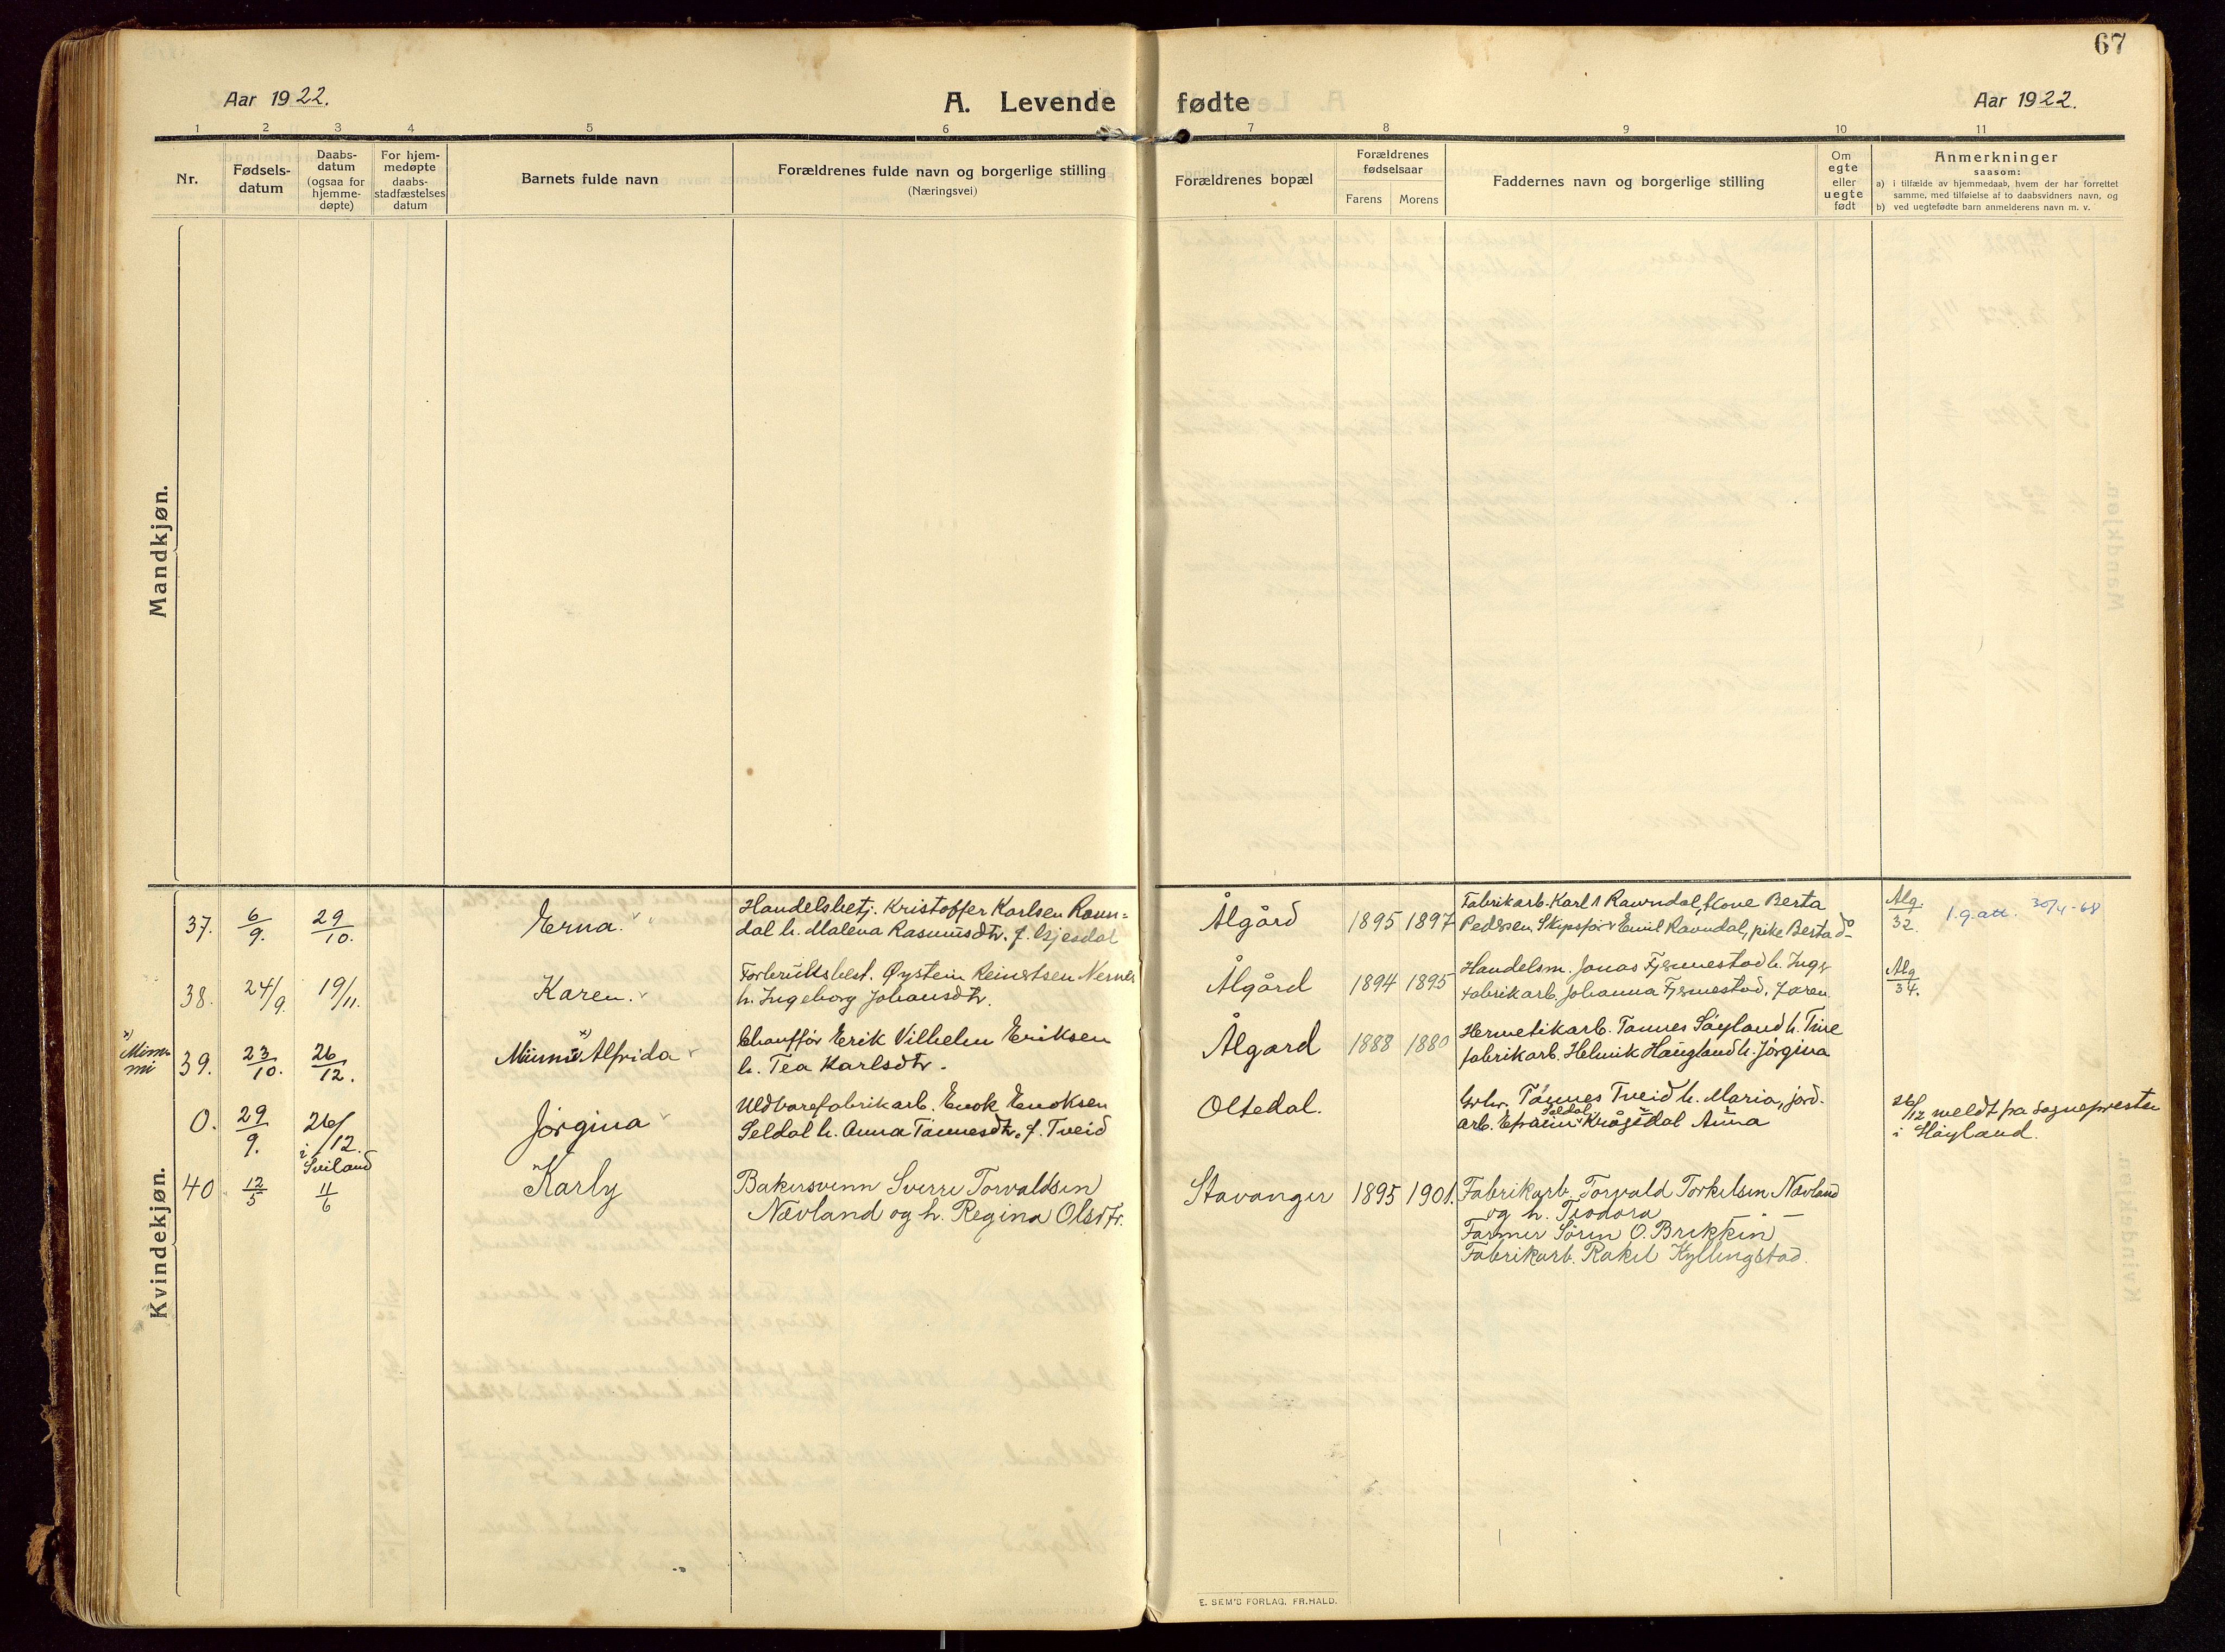 67
Aar 1922.
A. Levende fødte
Aar 1922.
1 2 3 4 5 6 7 8 9 10 11
Nr.
Fødsels-
datum
Daabs-
datum
(ogsaa for
hjemme-
døpte)
For hjem-
medøpte
daabs-
stadfæstelses
datum
Barnets fulde navn
Forældrenes fulde navn og borgerlige stilling
(Næringsvei)
Forældrenes bopæl
Forældrenes
fødselsaar
Farens Morens
Faddernes navn og borgerlige stilling
Om
egte
eller
uegte
født
Anmerkninger
saasom:
a) i tilfælde av hjemmedaab, hvem der har forrettet
samme, med tilføielse af to daabsvidners navn, og
b) ved uegtefødte barn anmelderens navn m. v.
Mandkjøn.
Kvindekjøn.
37. 6/9. 29/10. Erna.
Handelsbetj. Kristoffer Karlsen Ravn=
dal h. Malena Rasmusdtr. f. Gjesdal
Ålgård 1895 1897
Fabrikarb. Karl Ravndal, kone Berta
Pedersen Skipsfør Emil Ravndal, pike Berta do
Alg. 32.
30/4-68
38. 24/9. 19/11. Karen.
Forbruksbest. Øystein Reinertsen Nesnes
h. Ingeborg Johansdtr.
Ålgård 1894 1895
Handelsm. Jonas Fjermestad h. Inger
fabrikarb. Johanna Fjermestad,
Alg 34.
x) Mimmi
39. 23/10. 26/12. x) Alfrida
Chauffør Erik Vilhelm Eriksen
h. Tea Karlsdtr.
Ålgard 1888 1880
Hermetikarb. Tønnes Søyland h. Tine
fabrikarb. Helmik Haugland h. Jørgina
0. 29/9. 26/12. i Sviland Jørgina
Uldvarefabrikarb. Enok Enoksen
Seldal h. Anna Tønnesdtr. f. Tveid
Oltedal.
Grbr. Tønnes Tveid h. Maria, jord.
arb. Efraim Seldal Anna
26/12 meldt fra sognepresten
i Høyland.
40 12/5 11/6 Karly
Bakersvenn Sverre Torvaldsen
Nævland og h. Regina Olsdtr.
Stavanger 1895 1901.
Fabrikarb. Torvald Torkelsen Nævland
og h. Teodora
Farmer Søren O. Brekken
Fabrikarb. Rakel Kyllingstad.
E. SEM'S FORLAG, FR.HALD.